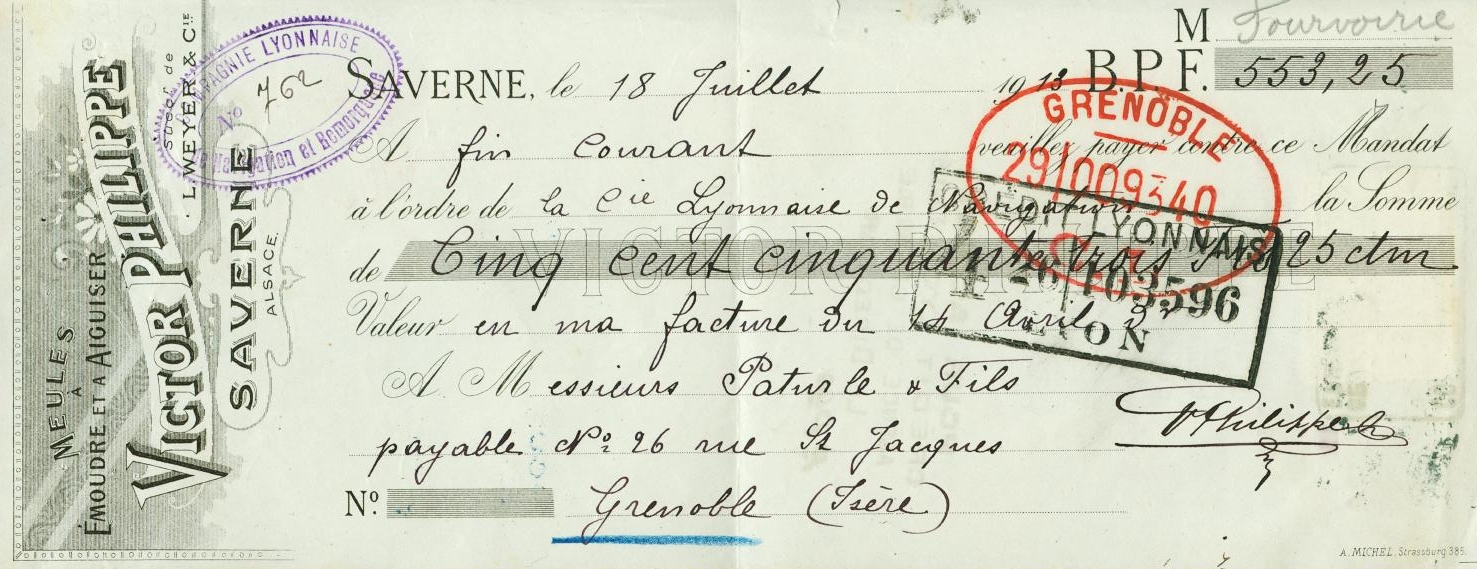 MEULES
A
ÉMOUDRE ET A AIGUISER
VICTOR PHILIPPE
Succr de
L. WEYER & Cie
SAVERNE
ALSACE.
COMPAGNIE LYONNAISE
No 762
de Navigation et Remorquage
M Fourvoirie
SAVERNE, le 18 Juillet 1913 B.P.F. 553,25
A fin courant veuillez payer contre ce Mandat
à l'ordre de la Cie Lyonnaise de Navigation la Somme
de Cinq cent cinquante Trois frs 25 ctm
VICTOR PHILIPPE
Valeur en ma facture du 14 Avril
A Messieurs Paturle & Fils
payable No 26 rue St Jacques
No. Grenoble (Isère)
GRENOBLE
291009340
CRÉDIT LYONNAIS
103596
LYON
VPhilippe
A. MICHEL, Strassburg 385.